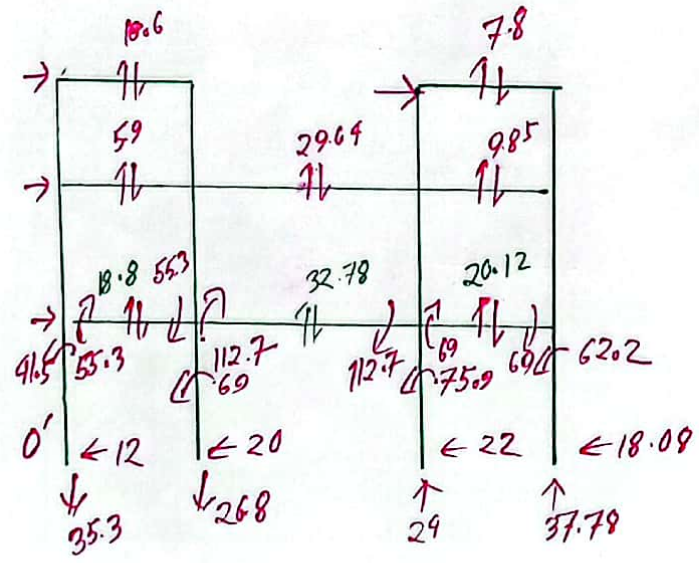 18.6 7.8
59 29.64 9.85
18.8 55.3 32.78 20.12
41.5 55.3 112.7 112.7 69 69 62.2
69 75.9
0' ←12 ←20 ←22 ←18.08
35.3 268 29 37.78